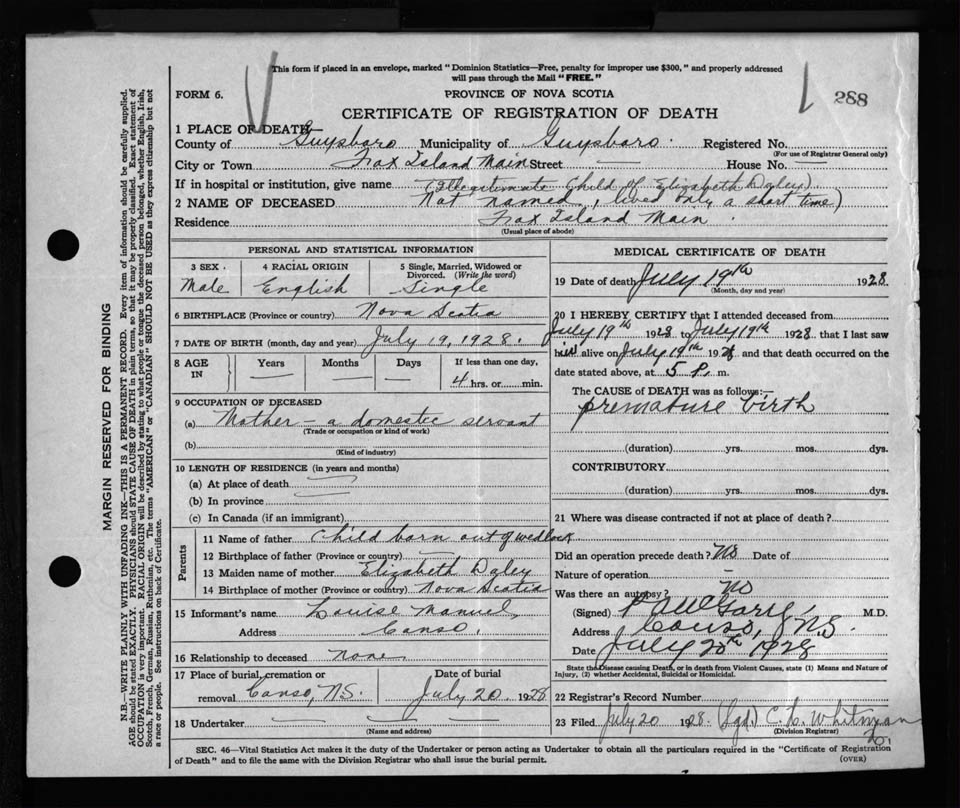 This form if placed in an envelope, marked "Dominion Statistics—Free, penalty for improper use $300," and properly addressed
will pass through the Mail "FREE."
FORM 6. PROVINCE OF NOVA SCOTIA 288
CERTIFICATE OF REGISTRATION OF DEATH
1 PLACE OF DEATH
County of Guysboro Municipality of Guysboro. Registered No.
(For use of Registrar General only)
City or Town Fox Island Main Street — House No. —
If in hospital or institution, give name (Illegitimate Child of Elizabeth Daley)
2 NAME OF DECEASED Not named, lived only a short time)
Residence Fox Island Main.
(Usual place of abode)
PERSONAL AND STATISTICAL INFORMATION
3 SEX. 4 RACIAL ORIGIN 5 Single, Married, Widowed or
Divorced. (Write the word)
Male English Single
6 BIRTHPLACE (Province or country) Nova Scotia
7 DATE OF BIRTH (month, day and year) July 19, 1928.
8 AGE IN Years Months Days If less than one day,
— — — 4 hrs. or min.
9 OCCUPATION OF DECEASED
(a) Mother — a domestic servant
(Trade or occupation or kind of work)
(b)
(Kind of industry)
10 LENGTH OF RESIDENCE (in years and months)
(a) At place of death —
(b) In province —
(c) In Canada (if an immigrant)
Parents
11 Name of father Child born out of wedlock
12 Birthplace of father (Province or country) —
13 Maiden name of mother Elizabeth Daley
14 Birthplace of mother (Province or country) Nova Scotia
15 Informant's name Louise Manuel
Address Canso.
16 Relationship to deceased none
17 Place of burial, cremation or Date of burial
removal Canso, N.S. July 20 1928
18 Undertaker — — — —
(Name and address)
MEDICAL CERTIFICATE OF DEATH
19 Date of death July 19th 1928.
(Month, day and year)
20 I HEREBY CERTIFY that I attended deceased from
July 19th 1928 to July 19th 1928, that I last saw
him alive on July 19th 1928, and that death occurred on the
date stated above, at 5 P. m.
The CAUSE of DEATH was as follows:—
premature birth
(duration) yrs. mos. dys.
CONTRIBUTORY
(duration) yrs. mos. dys.
21 Where was disease contracted if not at place of death?
Did an operation precede death? No Date of
Nature of operation —
Was there an autopsy? No
(Signed) M.D.
Address Canso, N.S.
Date July 20th 1928
State the Disease causing Death, or in death from Violent Causes, state (1) Means and Nature of
Injury, (2) whether Accidental, Suicidal or Homicidal.
22 Registrar's Record Number
23 Filed July 20 1928. (Sgd.) C. L. Whitman
(Division Registrar)
SEC. 46—Vital Statistics Act makes it the duty of the Undertaker or person acting as Undertaker to obtain all the particulars required in the "Certificate of Registration
of Death" and to file the same with the Division Registrar who shall issue the burial permit. (OVER)
MARGIN RESERVED FOR BINDING
N.B.—WRITE PLAINLY WITH UNFADING INK—THIS IS A PERMANENT RECORD. Every item of information should be carefully supplied.
AGE should be stated EXACTLY. PHYSICIANS should STATE CAUSE OF DEATH in plain terms, so that it may be properly classified. Exact statement of
OCCUPATION is very important. RACIAL ORIGIN will be described by stating to what people or tongue the deceased person belonged, whether English, Irish,
Scotch, French, German, Russian, Ruthenian, etc. The terms "AMERICAN" or "CANADIAN" SHOULD NOT BE USED as they express citizenship but not
a race or people. See instructions on back of Certificate.